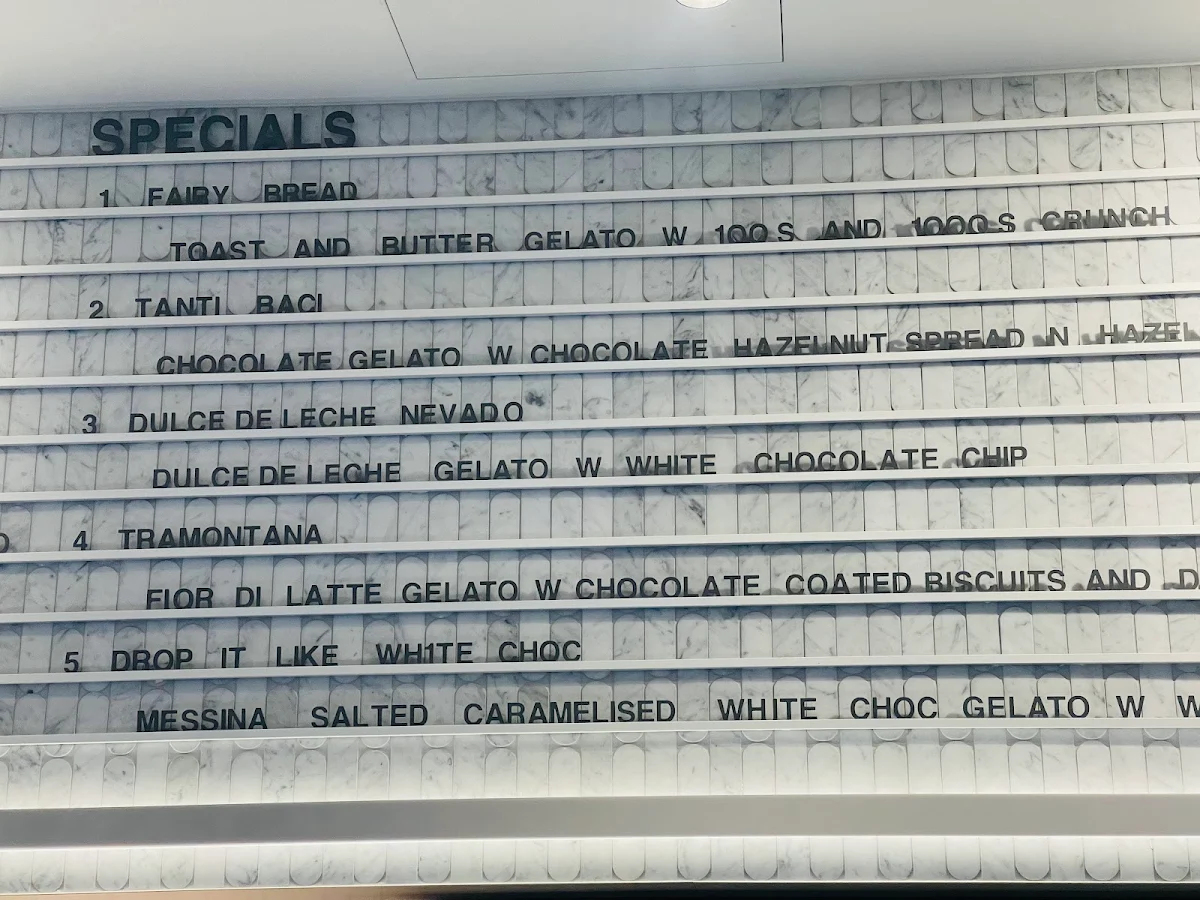 SPECIALS
1 FAIRY BREAD
TOAST AND BUTTER GELATO W 100S AND 1000S CRUNCH
2 TANTI BACI
CHOCOLATE GELATO W CHOCOLATE HAZELNUT SPREAD N HAZEL
3 DULCE DE LECHE NEVADO
DULCE DE LECHE GELATO W WHITE CHOCOLATE CHIP
4 TRAMONTANA
FIOR DI LATTE GELATO W CHOCOLATE COATED BISCUITS AND D
5 DROP IT LIKE WH1TE CHOC
MESSINA SALTED CARAMELISED WHITE CHOC GELATO W W